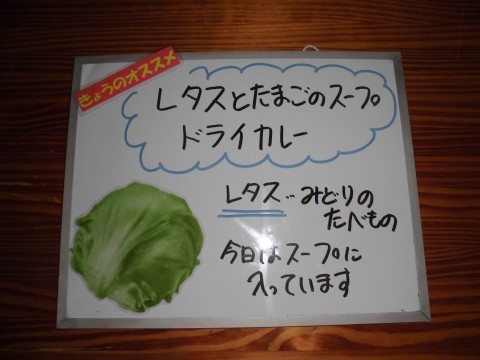 きょうのオススメ
レタスとたまごのスープ
ドライカレー
レタス…みどりの
たべもの
今日はスープに
入っています